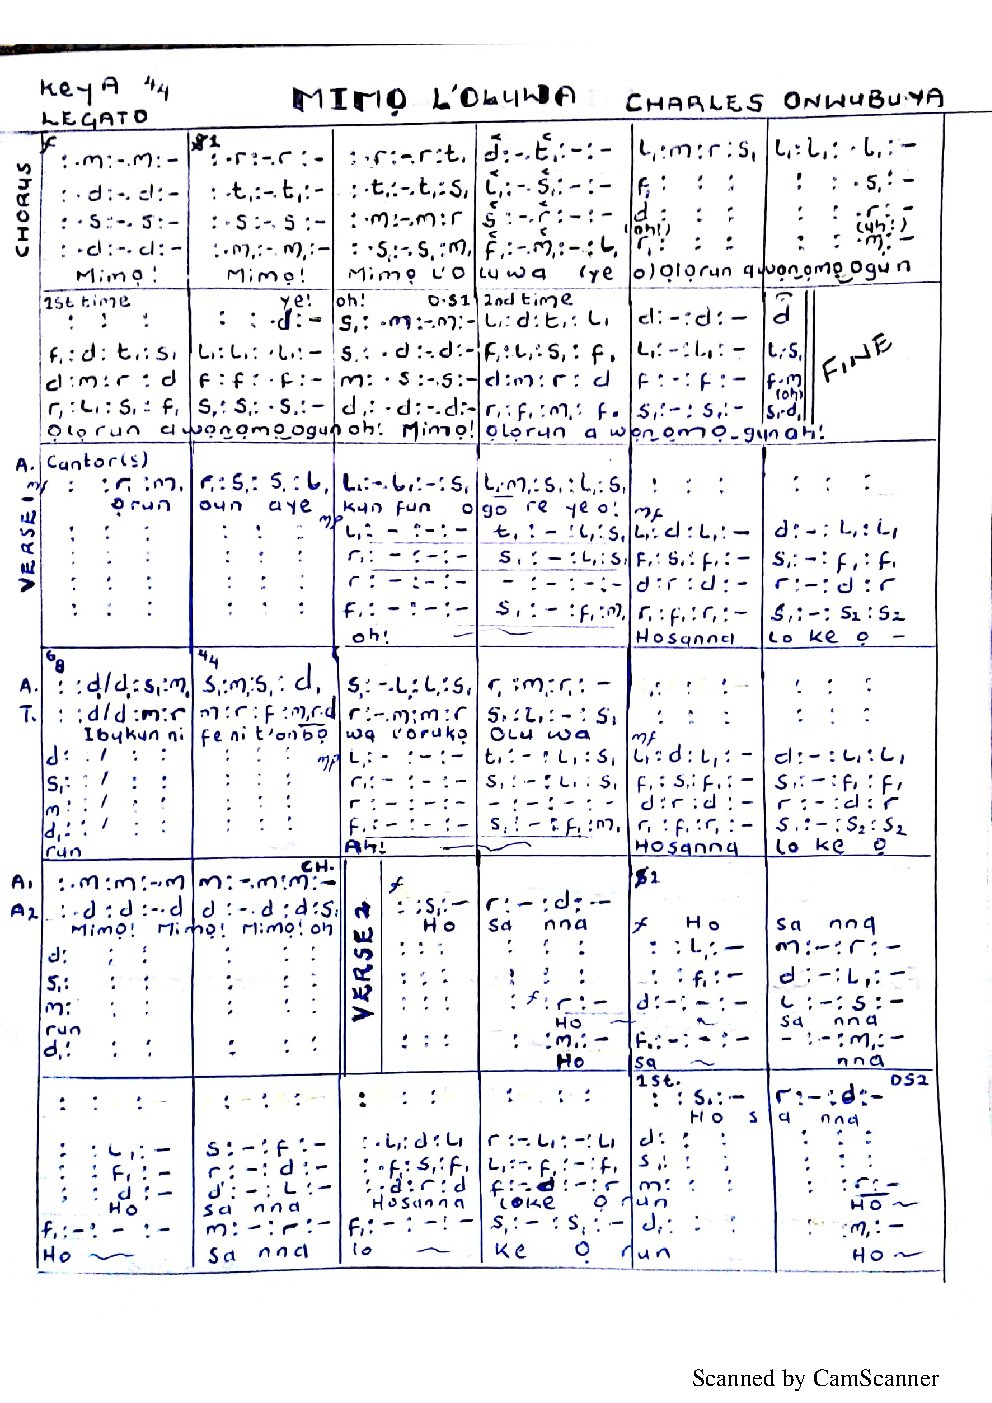 Key A 4/4 MIMỌ L'OLUWA CHARLES ONWUBUYA
LEGATO
CHORUS
f §1
:.m:-.m:- :.r:-.r:- :.r:-.r:t, d:-.t,:-:- L,:m:r:S, L,:L,:.L,:-
:.d:-.d:- :.t,:-.t,:- :.t,:-.t,:S, L,:-.S,:-:- f,: : : : : .S,:-
:.S:-.S:- :.S:-.S:- :.m:-.m:r S:-.r:-:- d: : : : : .r:-
(oh!) (uh!)
:.d:-.d:- :.m,:-.m,:- :.S,:-.S,:m, f,:-.m,:-:L, r,: : : : : .m,:-
Mimọ! Mimọ! Mimọ L'O luwa (ye o) Ọlọrun awọnọmọ ogun
1st time ye! oh! D.S1 2nd time
: : : : : .d:- S,:.m:-.m:- L,:d:t,:L, d:-:d:- d
f,:d:t,:S, L,:L,:.L,:- S,:.d:-.d:- f,:L,:S,:f, L,:-:L,:- L,S,
FINE
d:m:r:d f:f:.f:- m:.S:-.S:- d:m:r:d f:-:f:- f.m
(oh)
r,:L,:S,:f, S,:S,:.S,:- d,:.d:-.d:- r,:f,:m,:f, S,:-:S,:- S,d,
Ọlọrun awọnọmọ ogun oh! Mimọ! Ọlọrun awọnọmọ-gun ah!
VERSE 1
A. Cantor(s)
mf : :r,:m, r,:S,:S,:L, L,:-.L,:-:S, L,m,:S,:L,:S, : : : : : :
ọrun oun aye kun fun ogo re ye o! mf
mp
: : : : : : L,:-:-:- t,:-:L,:S, L,:d:L,:- d:-:L,:L,
: : : : : : r,:-:-:- S,:-:L,:S, f,:S,:f,:- S,:-:f,:f,
: : : : : : r:-:-:- -:-:-:- d:r:d:- r:-:d:r
: : : : : : f,:-:-:- S,:-:f,:m, r,:f,:r,:- S,:-:S2:S2
oh! Hosanna lo ke ọ -
6/8 4/4
A. : :d,/d,:S,:m, S,:m,:S,:d, S,:-.L,:L,:S, r,:m,:r,:- : : : : : :
T. : :d/d:m:r m:r:f:m,r.d r:-.m:m:r S,:L,:-:S, : : : : : :
Ibukun ni fe ni t'onbọ wa l'orukọ Olu wa mf
d: : / : : : : : mp L,:-:-:- t,:-:L,:S, L,:d:L,:- d:-:L,:L,
S,: : / : : : : : r,:-:-:- S,:-:L,:S, f,:S,:f,:- S,:-:f,:f,
m: : / : : : : : r:-:-:- -:-:-:- d:r:d:- r:-:d:r
d,: : / : : : : : f,:-:-:- S,:-:f,:m, r,:f,:r,:- S,:-:S2:S2
run Ah! Hosanna lo ke ọ
CH. VERSE 2 f §2
A1 :.m:m:-.m m:-.m:m:- : :S,:- r:-:d:-
A2 :.d:d:-.d d:-.d:d:S, Ho sa nna f Ho sa nna
Mimọ! Mimọ! Mimọ! oh
d: : : : : : : : : : : : : :L,:- m:-:r:-
S,: : : : : : : : : : : : : :f,:- d:-:L,:-
m: : : : : : : : : : f:r:- d:-:-:- L:-:S:-
run Ho sa nna
d,: : : : : : : : : : :m,:- f,:-:-:- -:-:m,:-
Ho sa nna
1st. DS2
: : : : : : : : : : : : : :S,:- r:-:d:-
Ho sa nna
: :L,:- S:-:f:- :.L,:d:L, r:-.L,:-:L, d: : : : : :
: :f,:- r:-:d:- :.f,:S,:f, L,:-.f,:-:f, S,: : : : : :
: :d:- d:-:L:- :.d:r:d f:-.d:-:r m: : : : :r:-
Ho sa nna Hosanna loke ọrun Ho
f,:-:-:- m:-:r:- f,:-:-:- S,:-:S,:- d,: : : : :m,:-
Ho sa nna lo ke ọ run Ho
Scanned by CamScanner